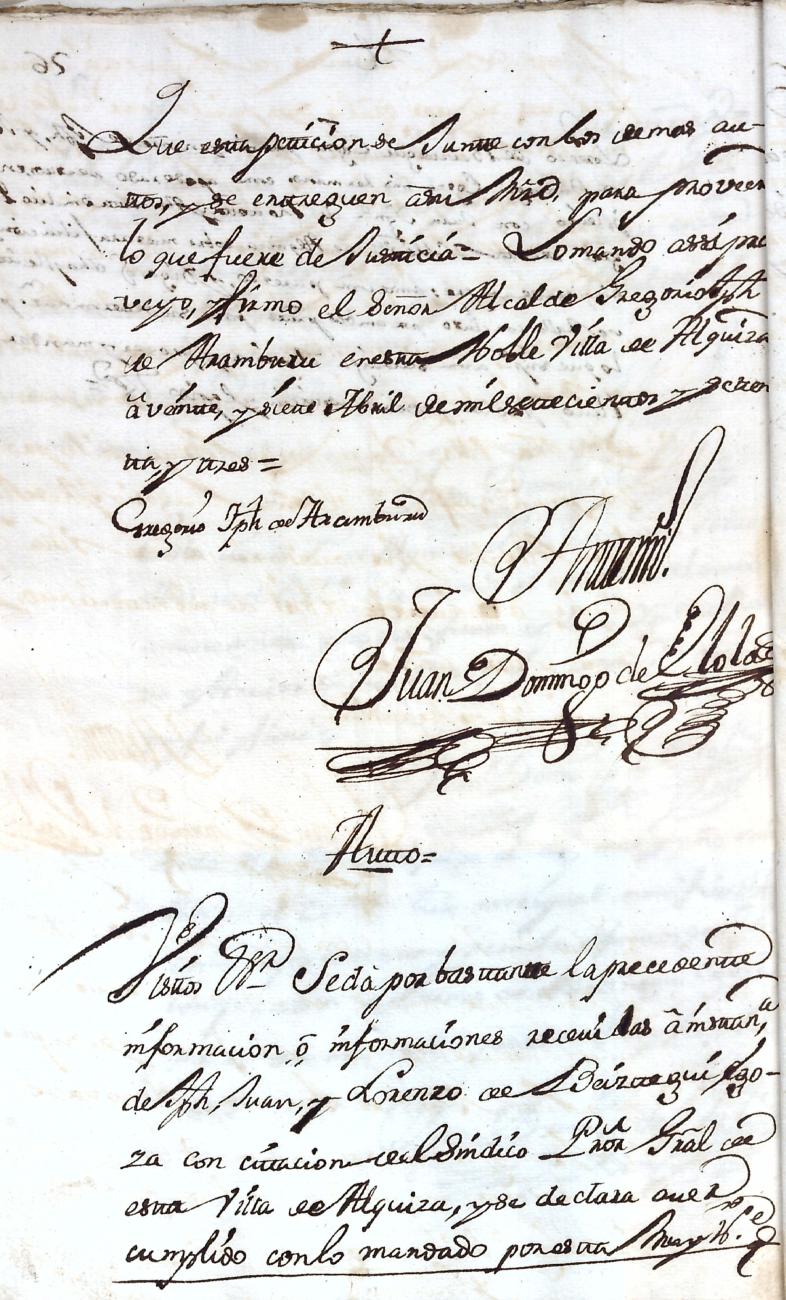 Que esta peticion se Junte con los demas au-
tos, y se entreguen a su Mrd, para proveer
lo que fuere de Justicia = Lo mando assi pro
veyo, y firmo el Señor Alcalde Gregorio Jph
de Aramburu en esta Noble Villa de Alquiza
â veinte, y siete Abril de mil setecientos y seten
ta, y tres =
Gregorio Jph de Aramburu
Antemi
Juan Domingo de
Autto =
Vistos Se dà por bastante la precedente
informacion ô informaciones recevidas â instan,a
de Jph, Juan, y Lorenzo de Beiztegui
za con citacion del Sindico Pror Gral de
esta Villa de Alquiza, y se declara aver
cumplido con lo mandado por esta Muy N.e